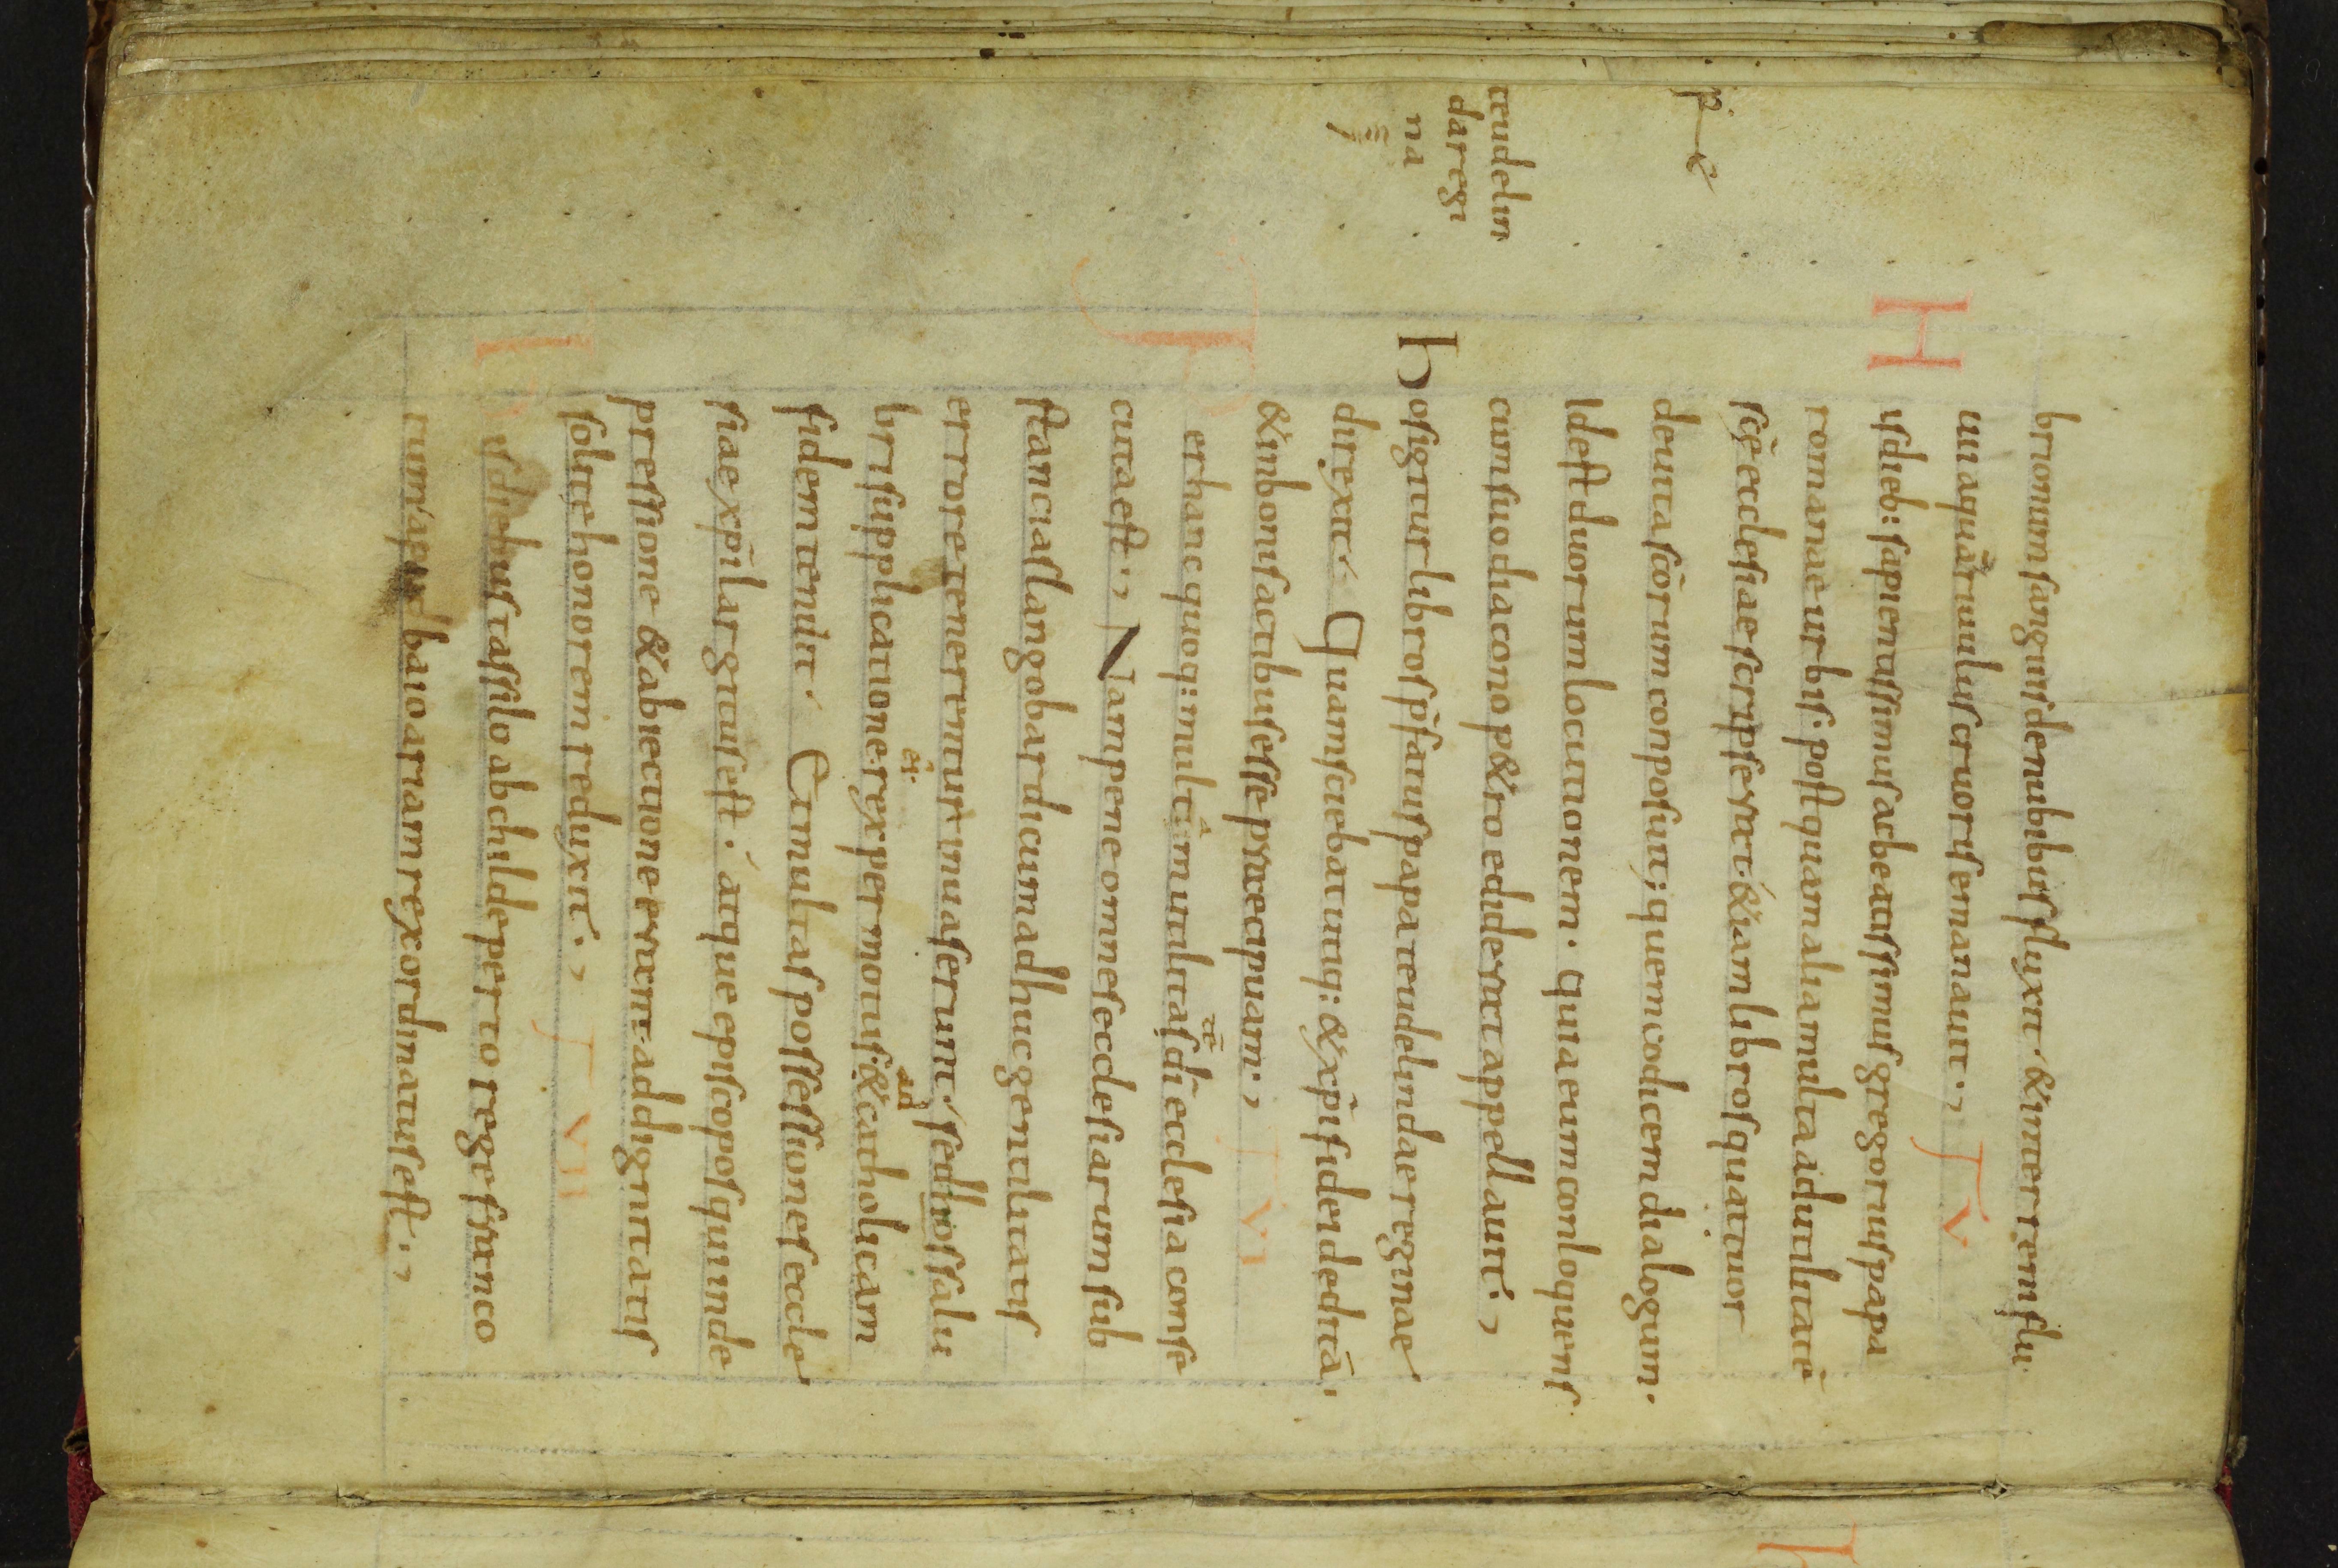 brionum sanguis de nubibus fluxit. & inter reni flu
uii aquā riuulus cruoris emanauit.,
V
His dieb: sapientissimus ac beatissimus gregorius papa
romanae urbis. postquam alia multa ad utilitatē
scē ecclesiae scripserat. & iam libros quattuor
de uita scōrum conposuit; quem codicem dialogum.
Id est duorum locutionem. quia eum conloquens
cum suo diacono p&ro ediderat appellauit.,
Hos igitur libros p̄fatus papa teudelindae reginae
direxit. Quam sciebat utiq: & xp̄i fidei deditā.
& in bonis actibus esse praecipuam.,
VI
Per hanc quoq: multum utilitas dī ecclesia conse
tē
cuta est., Nam pene omnes ecclesiarum sub
stancias langobardi cum adhuc gentilitatis
errore tenerentur inuaserunt. sed hos salu
bri supplicatione rex permotus. & catholicam
fidem tenuit. Et multas possessiones eccle
siae xp̄i largitus est. atque episcopos qui in de
pressione & abiectione erant. ad dignitatis
solite honorem reduxit.,
VII
His diebus tassilo ab childeperto rege franco
rum apud baioariam rex ordinatus est.,
teudelin
da regi
na